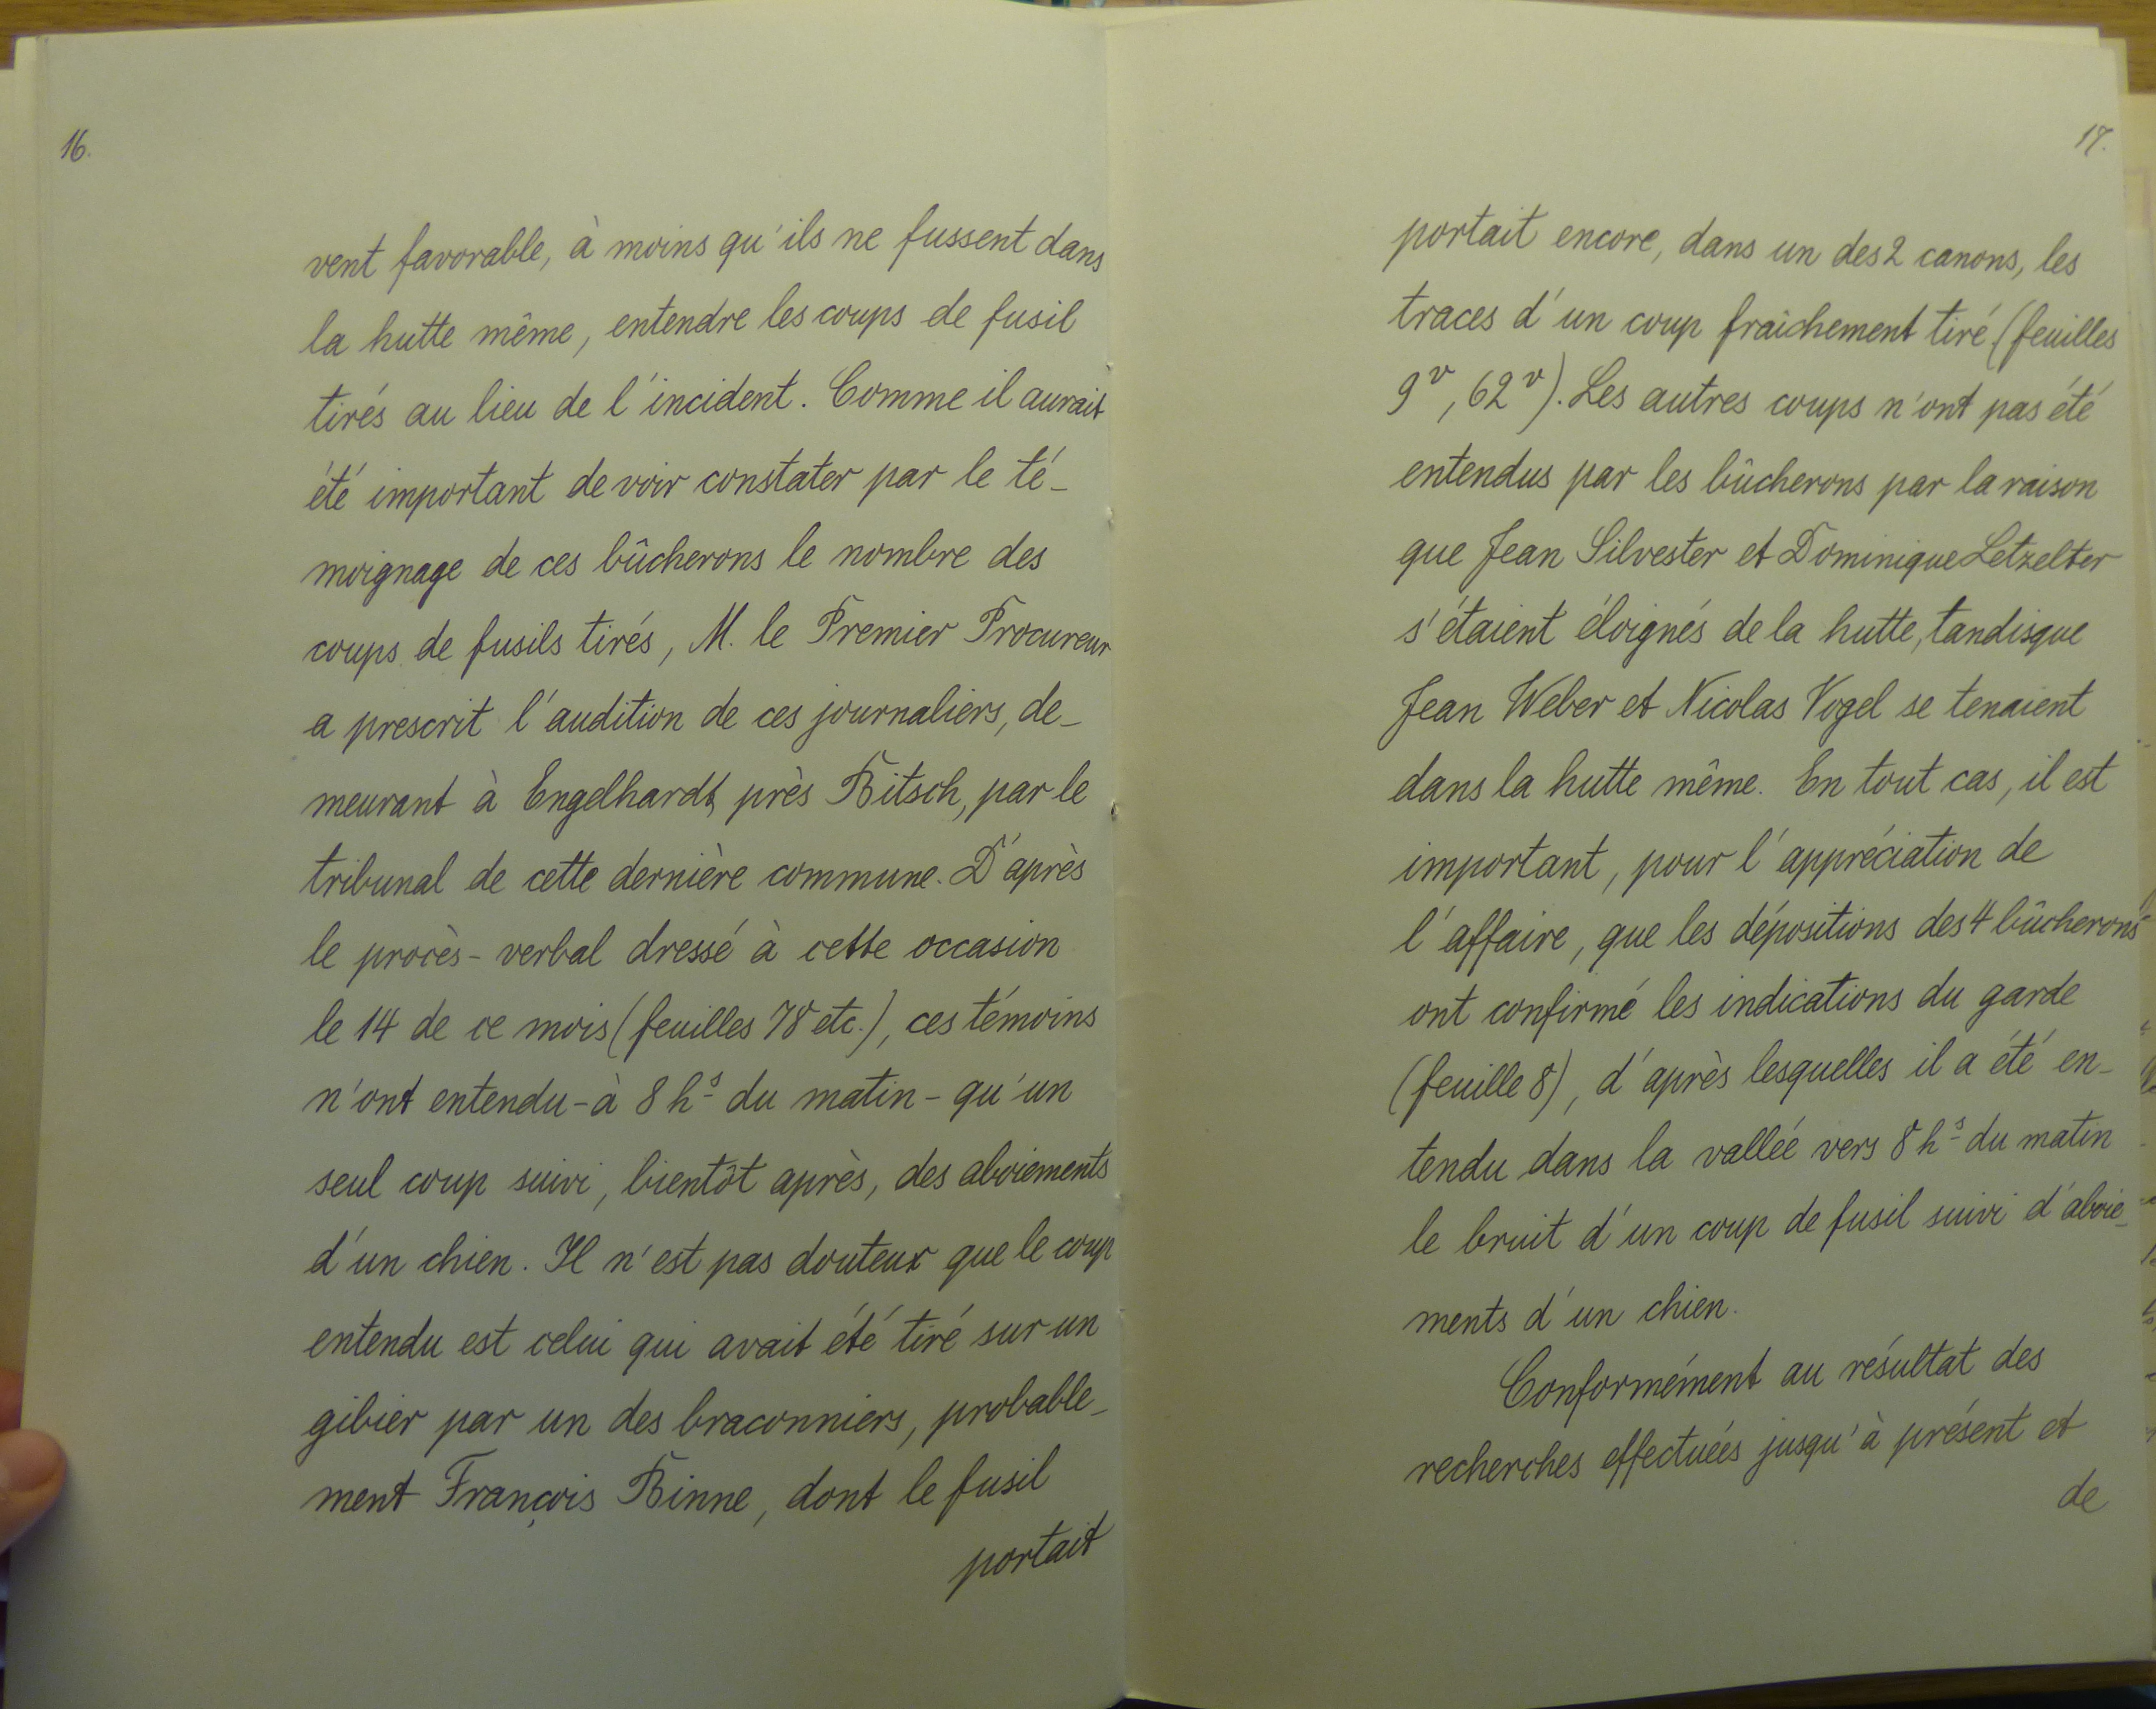 16.
vent favorable, à moins qu'ils ne fussent dans
la hutte même, entendre les coups de fusil
tirés au lieu de l'incident. Comme il aurait
été important de voir constater par le té-
moignage de ces bûcherons le nombre des
coups de fusils tirés, M. le Premier Procureur
a prescrit l'audition de ces journaliers, de-
meurant à Engelhardt, près Bitsch, par le
tribunal de cette dernière commune. D'après
le procès-verbal dressé à cette occasion
le 14 de ce mois (feuilles 78 etc.), ces témoins
n'ont entendu - à 8 hs du matin - qu'un
seul coup suivi, bientôt après, des aboiements
d'un chien. Il n'est pas douteux que le coup
entendu est celui qui avait été tiré sur un
gibier par un des braconniers, probable-
ment François Binne, dont le fusil
portait
17.
portait encore, dans un des 2 canons, les
traces d'un coup fraîchement tiré (feuilles
9v, 62v). Les autres coups n'ont pas été
entendus par les bûcherons par la raison
que Jean Silvester et Dominique Letzelter
s'étaient éloignés de la hutte, tandisque
Jean Weber et Nicolas Vogel se tenaient
dans la hutte même. En tout cas, il est
important, pour l'appréciation de
l'affaire, que les dépositions des 4 bûcherons
ont confirmé les indications du garde
(feuille 8), d'après lesquelles il a été en-
tendu dans la vallée vers 8 hs du matin
le bruit d'un coup de fusil suivi d'aboie-
ments d'un chien.
Conformément au résultat des
recherches effectuées jusqu'à présent et
de